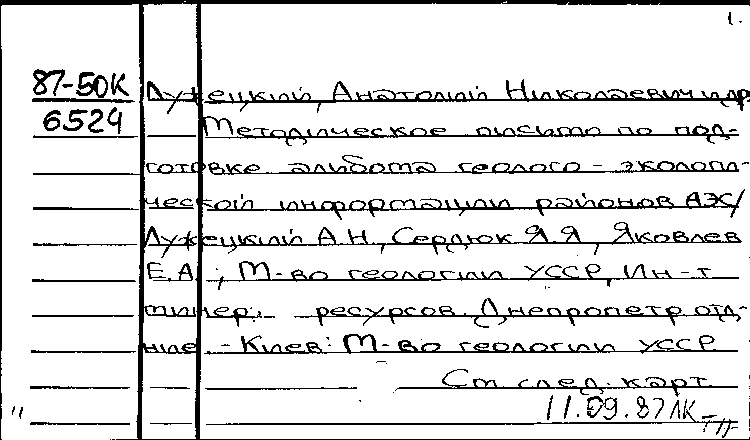 1.
87-50К Лужецкий, Анатолий Николаевич и др
6524 Методическое письмо по под-
готовке альбома геолого-экологи-
ческой информации районов АЭС/
Лужецкий А.Н., Сердюк Я.Я., Яковлев
Е.А.; М-во геологии УССР, Ин-т
минер. ресурсов. Днепропетр. отд-
ние. - Киев: М-во геологии УССР
См след. карт.
11.09.87 ЛК